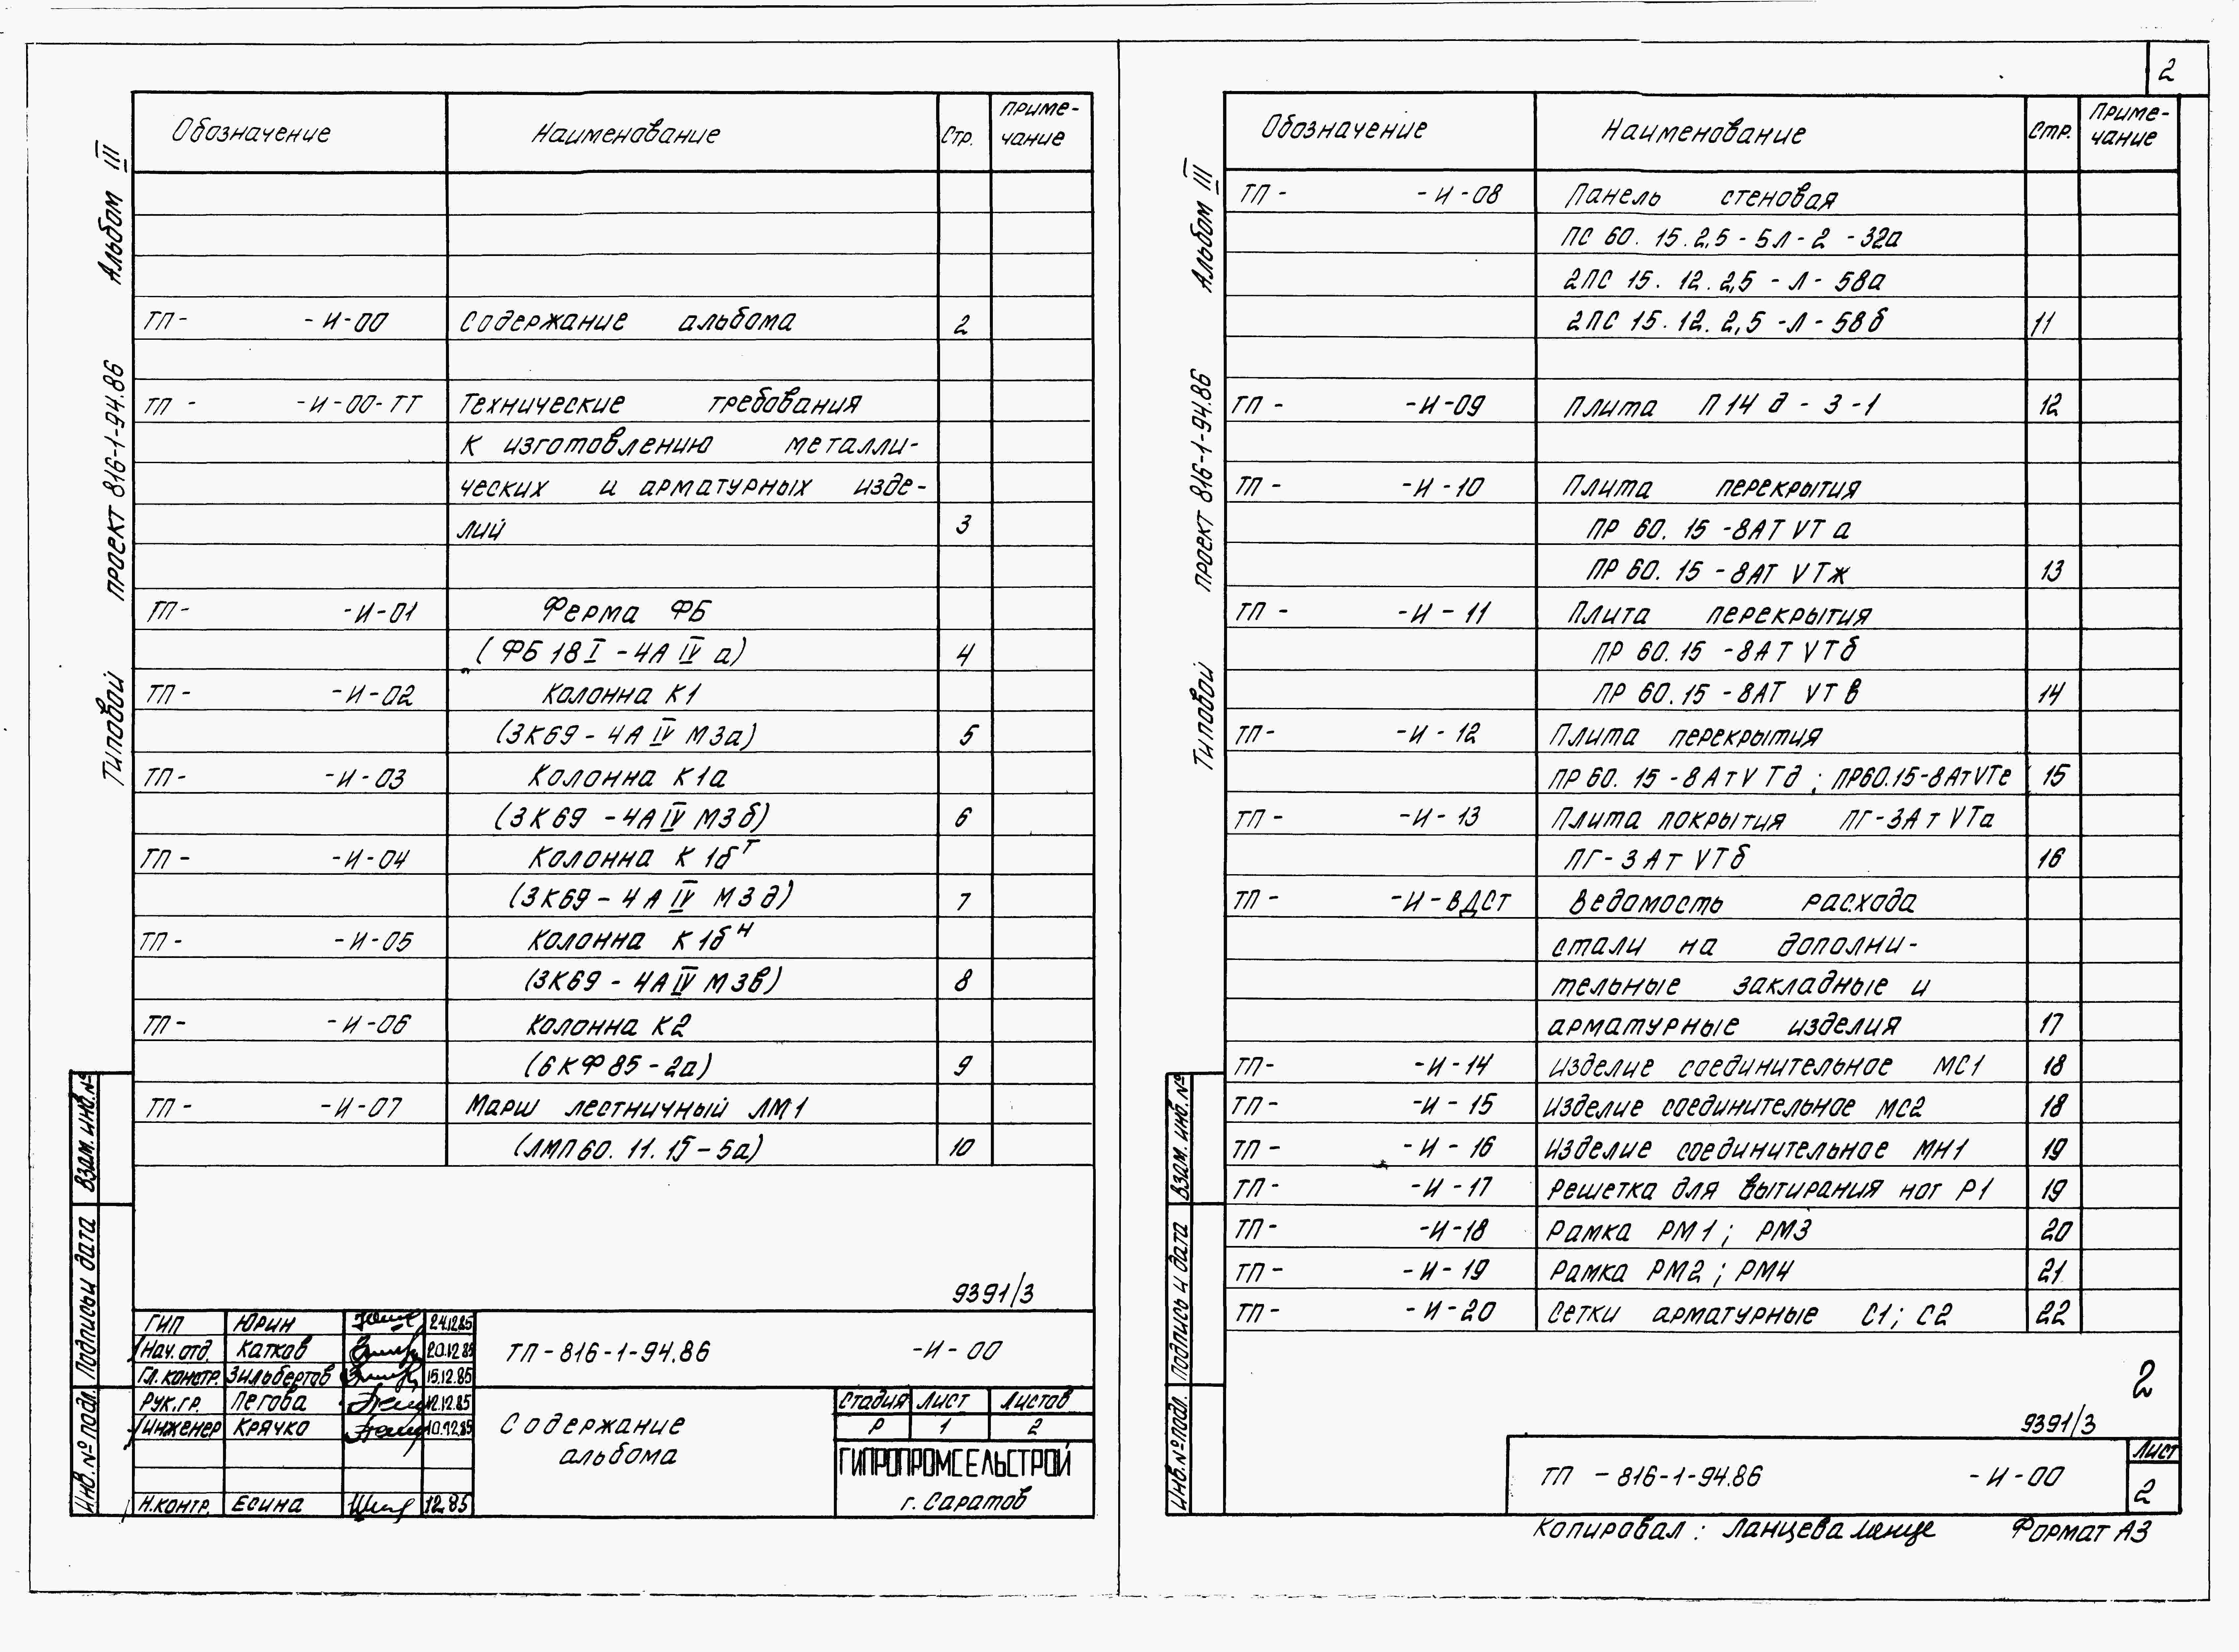 2
Альбом III
Типовой проект 816-1-94.86
Обозначение Наименование Стр. Приме-
чание
ТП- -И-00 Содержание альбома 2
ТП- -И-00-ТТ Технические требования
к изготовлению металли-
ческих и арматурных изде-
лий 3
ТП- -И-01 Ферма ФБ
(ФБ 18 I - 4А IV а) 4
ТП- -И-02 Колонна К1
(3К69 - 4А IV М3а) 5
ТП- -И-03 Колонна К1а
(3К69 - 4А IV М3б) 6
ТП- -И-04 Колонна К1бᵀ
(3К69 - 4А IV М3д) 7
ТП- -И-05 Колонна К1бᴴ
(3К69 - 4А IV М3в) 8
ТП- -И-06 Колонна К2
(6КФ85-2а) 9
ТП- -И-07 Марш лестничный ЛМ1
(ЛМП60.11.15-5а) 10
9391/3
ГИП Юрин 24.12.85
Нач.отд. Катков 20.12.85
Гл.констр. Зильбертов 15.12.85
Рук.гр. Пегова 12.12.85
Инженер Крячко 10.12.85
Н.контр. Есина 12.85
ТП-816-1-94.86 -И-00
Содержание
альбома
Стадия Лист Листов
Р 1 2
ГИПРОПРОМСЕЛЬСТРОЙ
г. Саратов
Взам. инв.№
Подпись и дата
Инв.№ подл.
Альбом III
Типовой проект 816-1-94.86
Обозначение Наименование Стр. Приме-
чание
ТП- -И-08 Панель стеновая
ПС 60.15.2,5-5Л-2-32а
2ПС 15.12.2,5-Л-58а
2ПС 15.12.2,5-Л-58б 11
ТП- -И-09 Плита П14д-3-1 12
ТП- -И-10 Плита перекрытия
ПР 60.15-8АТ VТ а
ПР 60.15-8АТ VТж 13
ТП- -И-11 Плита перекрытия
ПР 60.15-8АТ VТб
ПР 60.15-8АТ VТв 14
ТП- -И-12 Плита перекрытия
ПР 60.15-8АтV Тд; ПР60.15-8АтVТе 15
ТП- -И-13 Плита покрытия ПГ-3Ат VТа
ПГ-3Ат VТб 16
ТП- -И-ВДСТ Ведомость расхода
стали на дополни-
тельные закладные и
арматурные изделия 17
ТП- -И-14 Изделие соединительное МС1 18
ТП- -И-15 Изделие соединительное МС2 18
ТП- -И-16 Изделие соединительное МН1 19
ТП- -И-17 Решетка для вытирания ног Р1 19
ТП- -И-18 Рамка РМ1; РМ3 20
ТП- -И-19 Рамка РМ2; РМ4 21
ТП- -И-20 Сетки арматурные С1; С2 22
2
9391/3
ТП-816-1-94.86 -И-00
Лист
2
Взам. инв.№
Подпись и дата
Инв.№ подл.
Копировал: Ланцева Формат А3